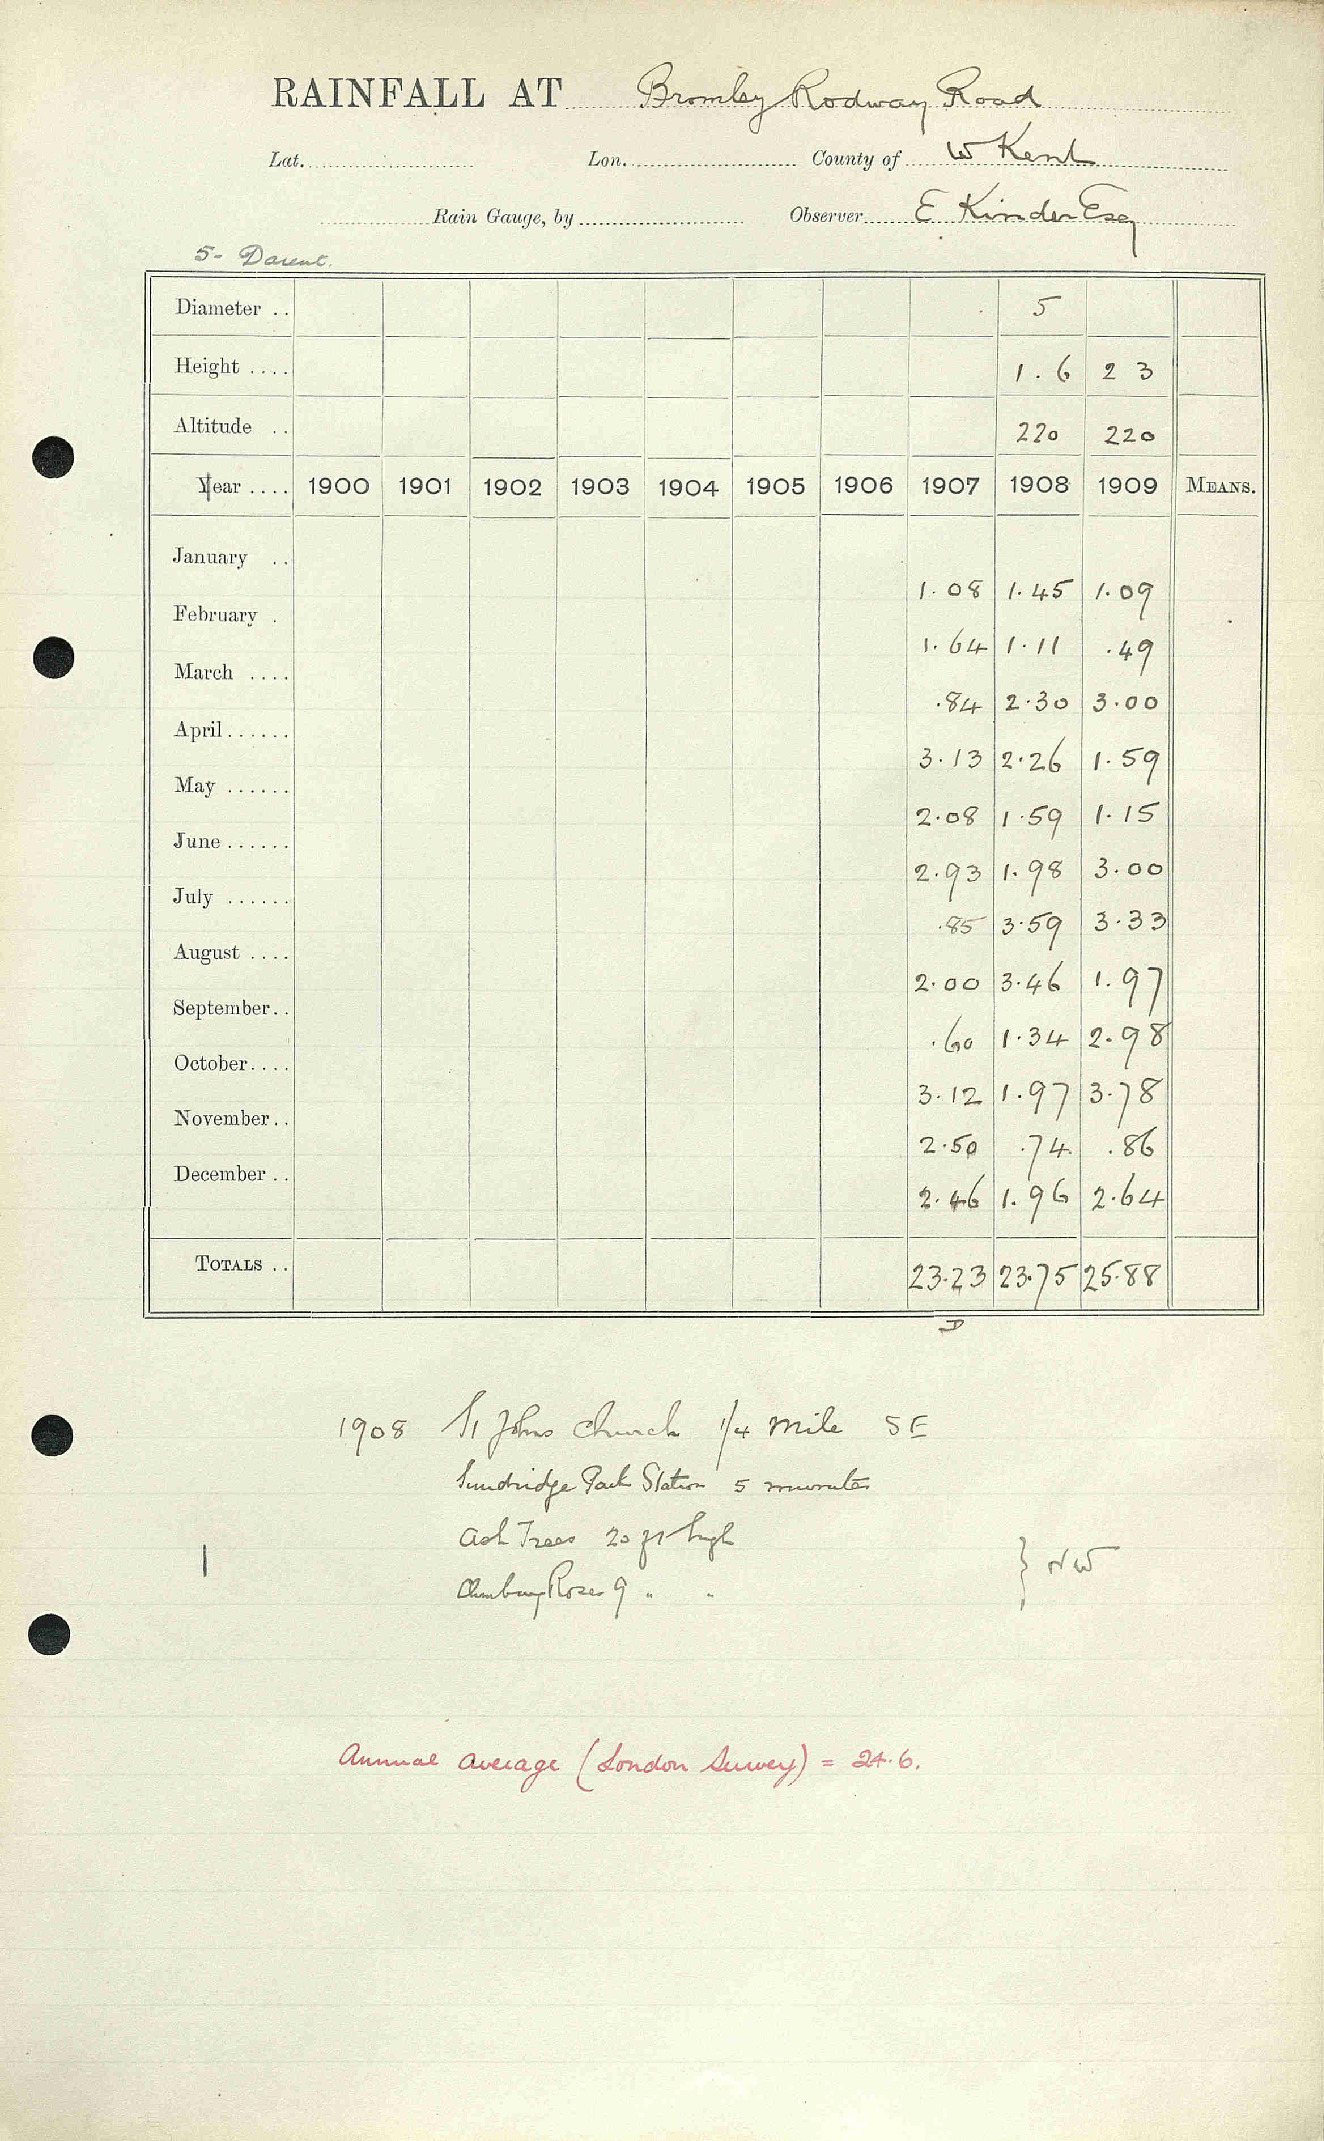 RAINFALL AT Bromley Rodway Road
Lat. Lon. County of W Kent
Rain Gauge, by Observer E Kinder Esq
5- Darent.
Diameter .. 5
Height .... 1. 6 2 3
Altitude .. 220 220
Year .... 1900 1901 1902 1903 1904 1905 1906 1907 1908 1909 MEANS.
January .. 1.08 1.45 1.09
February . 1.64 1.11 .49
March .... .84 2.30 3.00
April...... 3.13 2.26 1.59
May ...... 2.08 1.59 1.15
June ...... 2.93 1.98 3.00
July ...... .85 3.59 3.33
August .... 2.00 3.46 1.97
September.. .60 1.34 2.98
October.... 3.12 1.97 3.78
November.. 2.50 .74 .86
December .. 2.46 1.96 2.64
TOTALS .. 23.23 23.75 25.88
D
1908 St Johns Church 1/4 mile SE
Sundridge Park Station 5 minutes
Ash Trees 20 ft high
Climbing Roses 9 " " } NW
Annual average (London Survey) = 24.6.